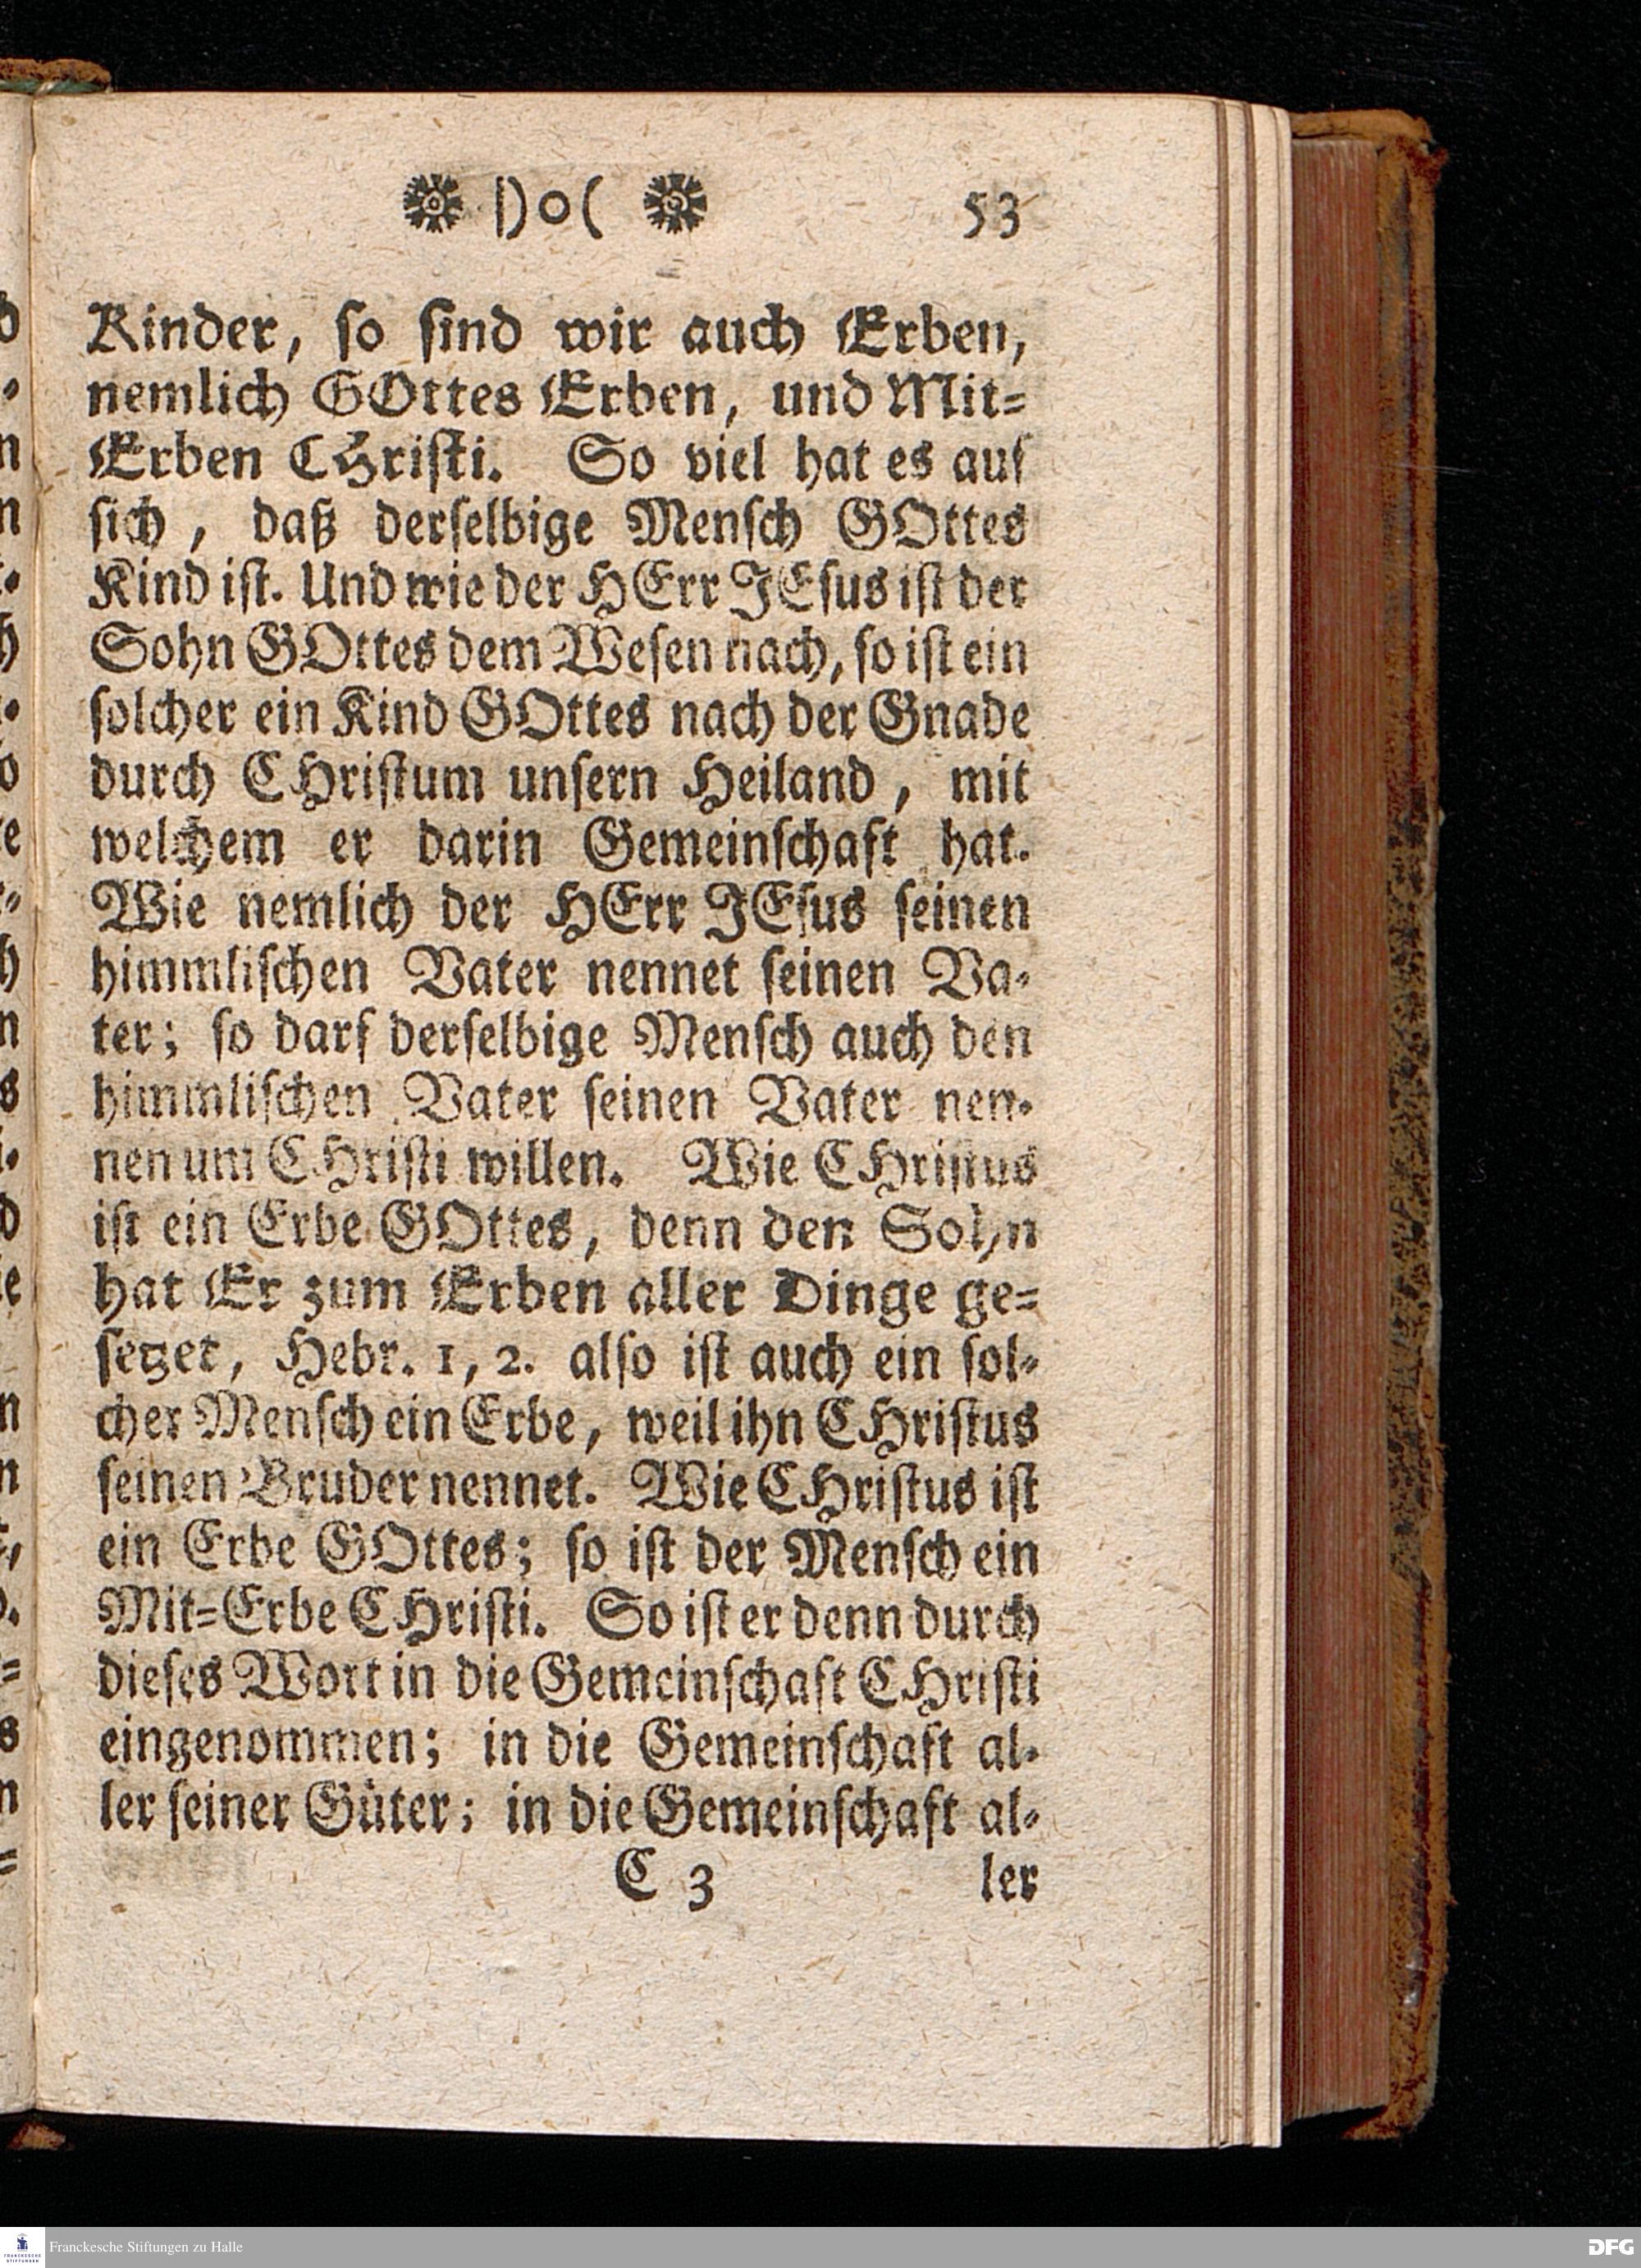 )o( 53
Kinder, so sind wir auch Erben,
nemlich GOttes Erben, und Mit=
Erben CHristi. So viel hat es auf
sich, daß derselbige Mensch GOttes
Kind ist. Und wie der HErr JEsus ist der
Sohn GOttes dem Wesen nach, so ist ein
solcher ein Kind GOttes nach der Gnade
durch CHristum unsern Heiland, mit
welchem er darin Gemeinschaft hat.
Wie nemlich der HErr JEsus seinen
himmlischen Vater nennet seinen Va-
ter; so darf derselbige Mensch auch den
himmlischen Vater seinen Vater nen-
nen um CHristi willen. Wie CHristus
ist ein Erbe GOttes, denn den Sohn
hat Er zum Erben aller Dinge ge=
setzet, Hebr. 1, 2. also ist auch ein sol-
cher Mensch ein Erbe, weil ihn CHristus
seinen Bruder nennet. Wie CHristus ist
ein Erbe GOttes; so ist der Mensch ein
Mit=Erbe CHristi. So ist er denn durch
dieses Wort in die Gemeinschaft CHristi
eingenommen; in die Gemeinschaft al-
ler seiner Güter; in die Gemeinschaft al-
C 3 ler
Franckesche Stiftungen zu Halle
DFG